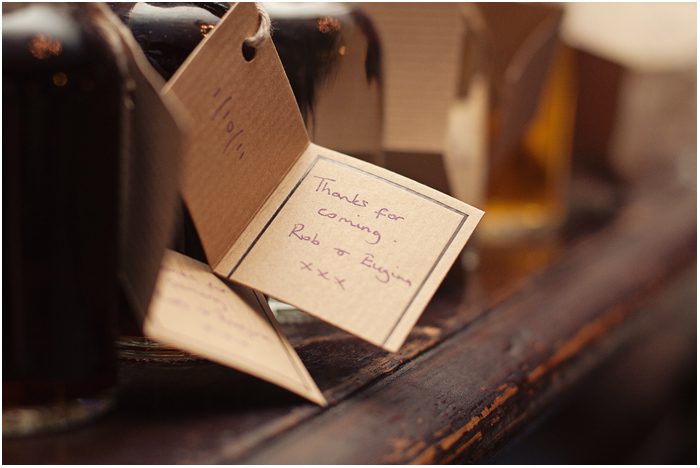 1/10/11
Thanks for
coming.
Rob & Eugina
xxx